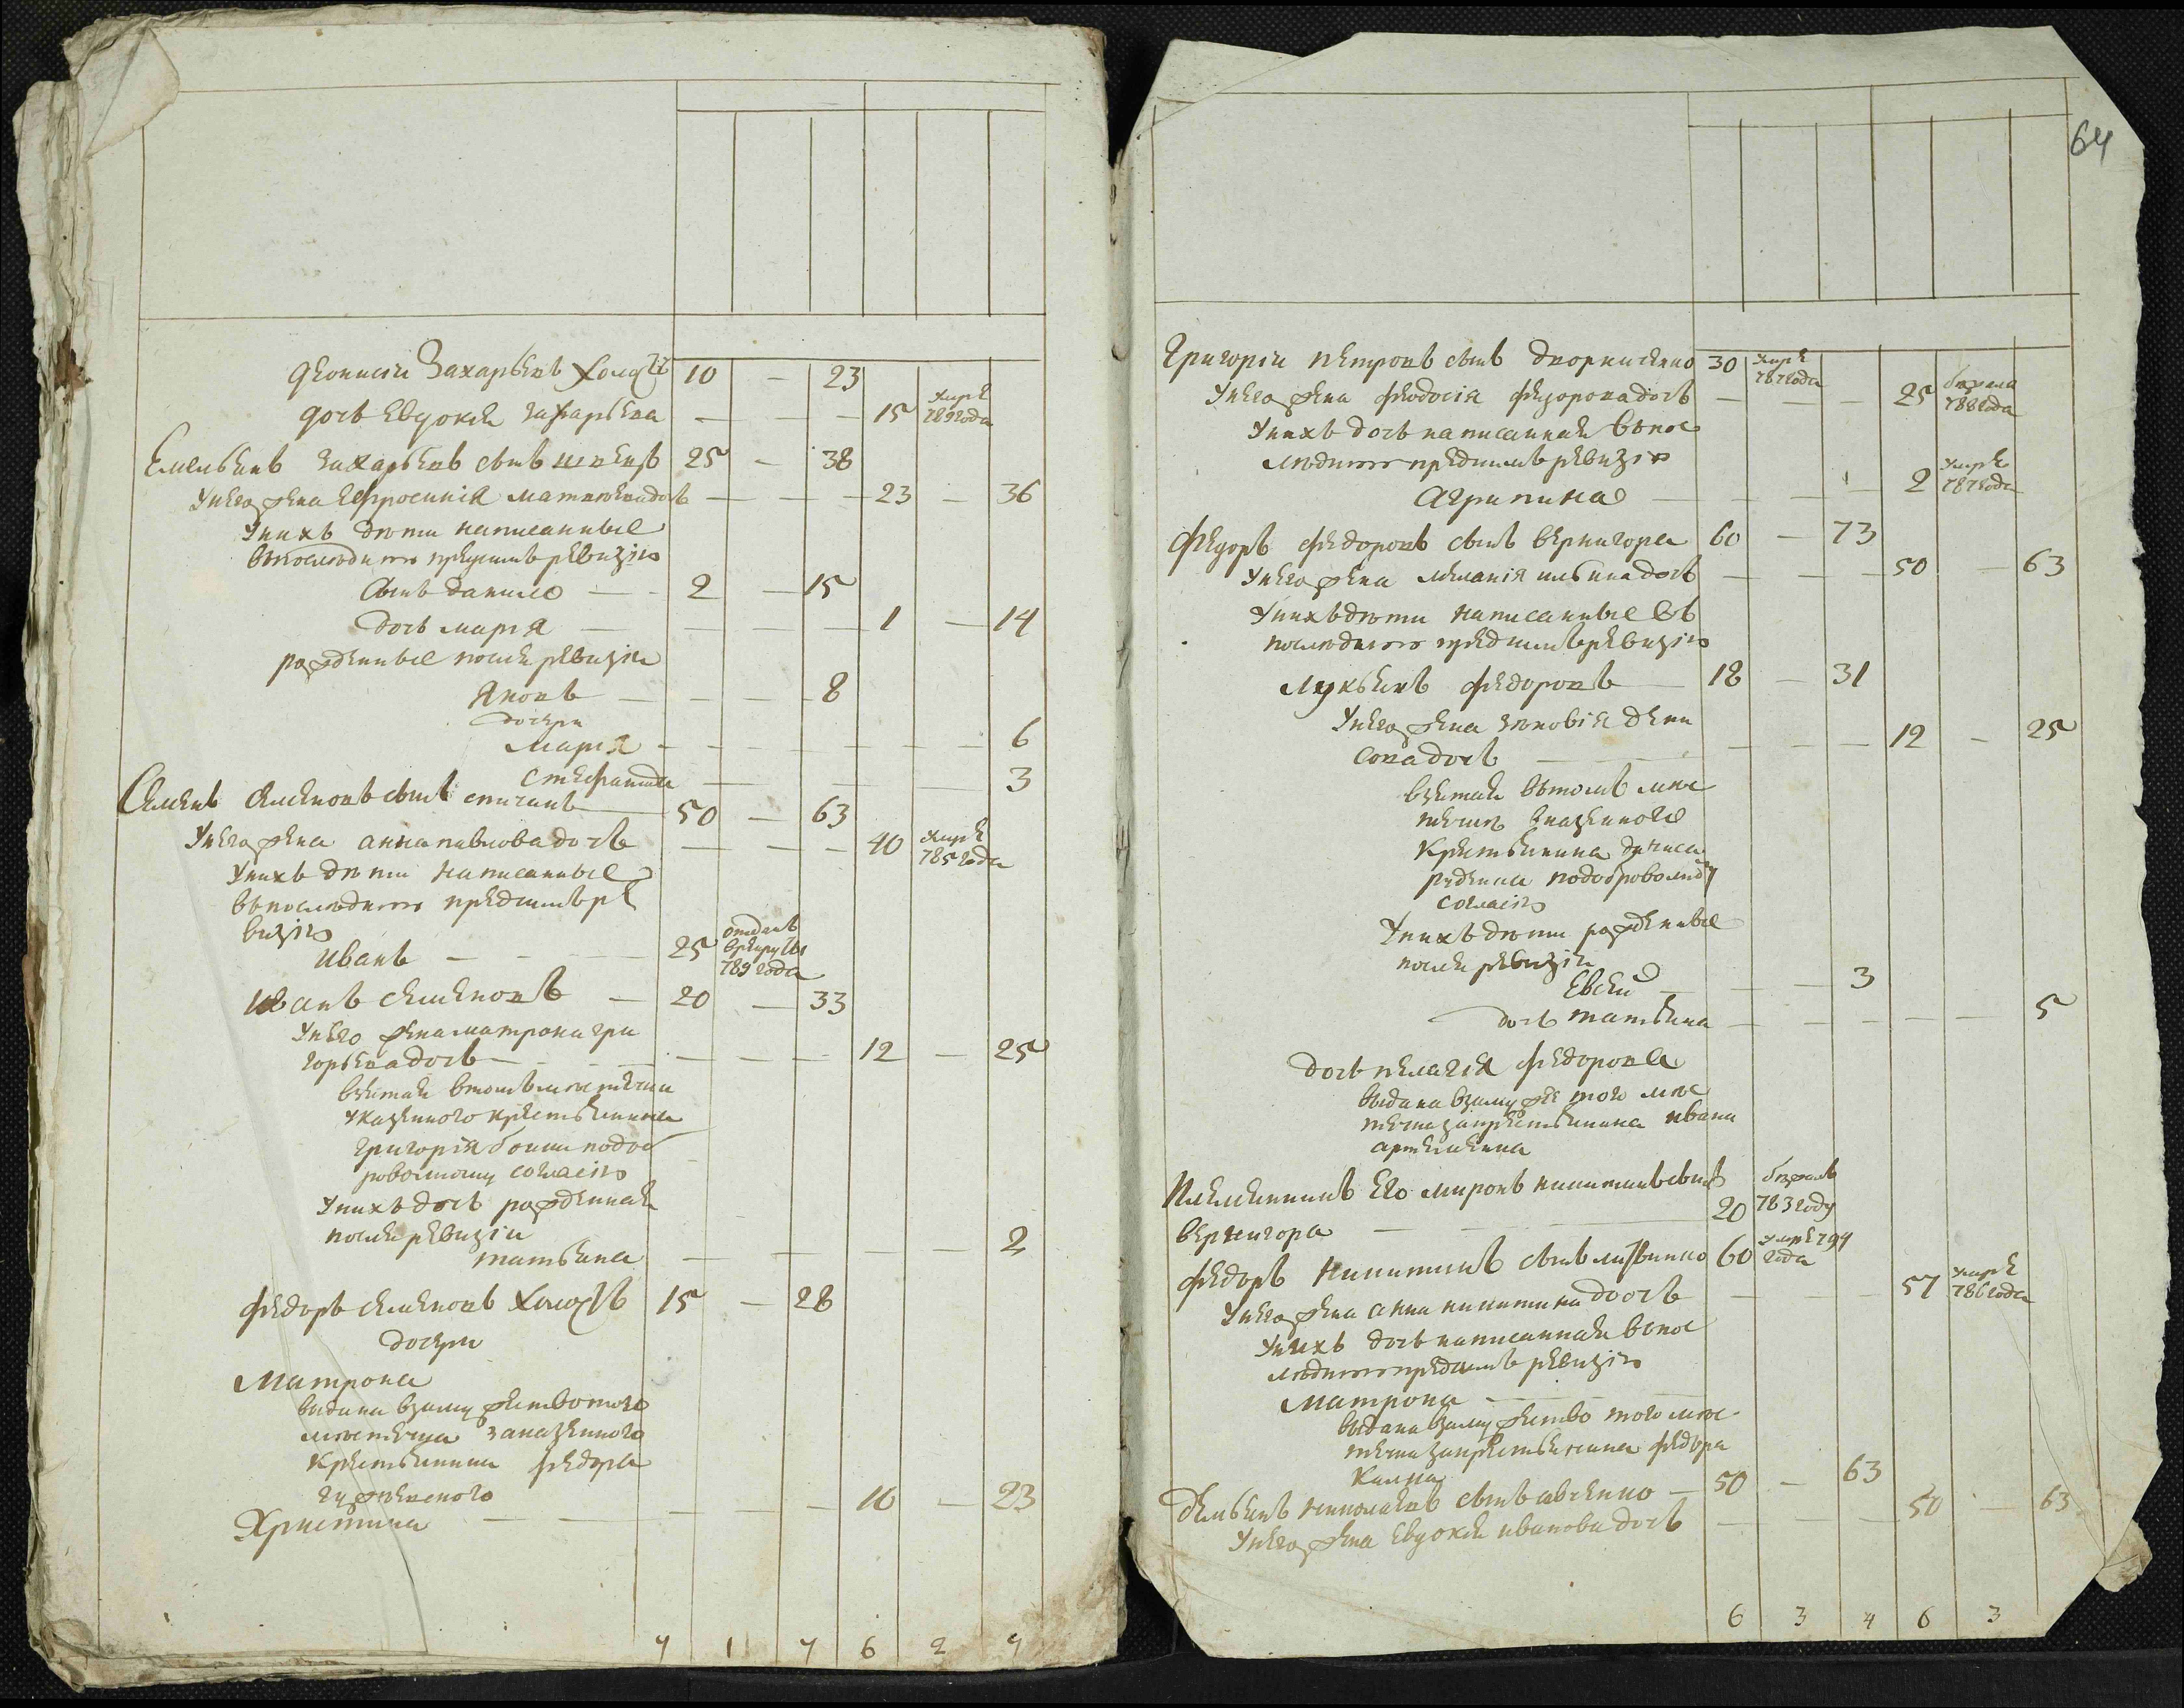 Деонисiи Захарьевъ холостъ 10 — 23
дочь Евдокея Захарьева — — — 15 умре 789 года
Емельянъ Захарьевъ сынъ 25 — 38
У него жена Ефросиния Матвеева дочь — — — 23 — 36
У нихъ дѣти написанные
въ последнюю пред симъ ревизiю
Сынъ Данило — 2 — 15
Дочь Марiя — — — — 1 — 14
рожденные после ревизiи
Яковъ — — — 8
дочери
Марiя — — — — — — 6
Стефанида — — — — 3
Семенъ Семеновъ сынъ спичакъ 50 — 63
У него жена Анна Павлова дочь — — — 40 умре 785 года
У нихъ дѣти написанные
въ последнюю пред симъ ре
визiю
Иванъ — — — 25 отданъ в рекруты 789 года
Иванъ Семеновъ — 20 — 33
У него жена Матрона Гри
горьева дочь — — — 12 — 25
взятая в томъ местечки
у казенного крестьянина
Григорiя подоб
ровольному согласiю
У нихъ дочь рожденная
после ревизiи
Татьяна — — — — 2
Федоръ Семеновъ холостъ 15 — 28
дочери
Матрона
выдана взамужество того
местечка за казенного
крестьянина Федора
Христина — — — — — 10 — 23
4 1 7 6 2 7
64
Григорiи Петровъ сынъ 30 умре 787 года
У него жена Феодосiя Федорова дочь — — — 25 бежала 788 года
У нихъ дочь написанная в пос
леднюю пред симъ ревизiю
Агрипина — — — — 2 умре 787 года
Федоръ Федоровъ сынъ Вернигора 60 — 73
У него жена Меланiя Ильина дочь — — — 50 — 63
У нихъ дѣти написанные въ
последнюю пред симъ ревизiю
Лукьянъ Федоровъ — 18 — 31
У него жена Зѣновiя Дени
сова дочь — — — 12 — 25
взятая въ томъ мес
течке в казенного
крестьянина Дениса
по доброволному
согласiю
У нихъ дѣти рожденные
после ревизiи
Евсей — — — 3
дочь Татьяна — — — — — 5
Дочь Пелагея Федорова
выдана взамуже того мес
течка за крестьянина Ивана
Артемена
Племянникъ его Миронъ Никитинъ сынъ
Вернигора — — 20 бежалъ 783 году
Федоръ Никитинъ сынъ литвинно 60 умре 794 года
У него жена Анна Никитина дочь — — — 57 умре 786 года
У нихъ дочь написанная в пос
леднюю пред симъ ревизiю
Матрона — — —
выдана взамужество того мес
течка за крестьянина Федора
Демьянъ Николаевъ сынъ — 50 — 63
У него жена Евдокея Иванова дочь — — — 50 — 63
6 3 4 6 3